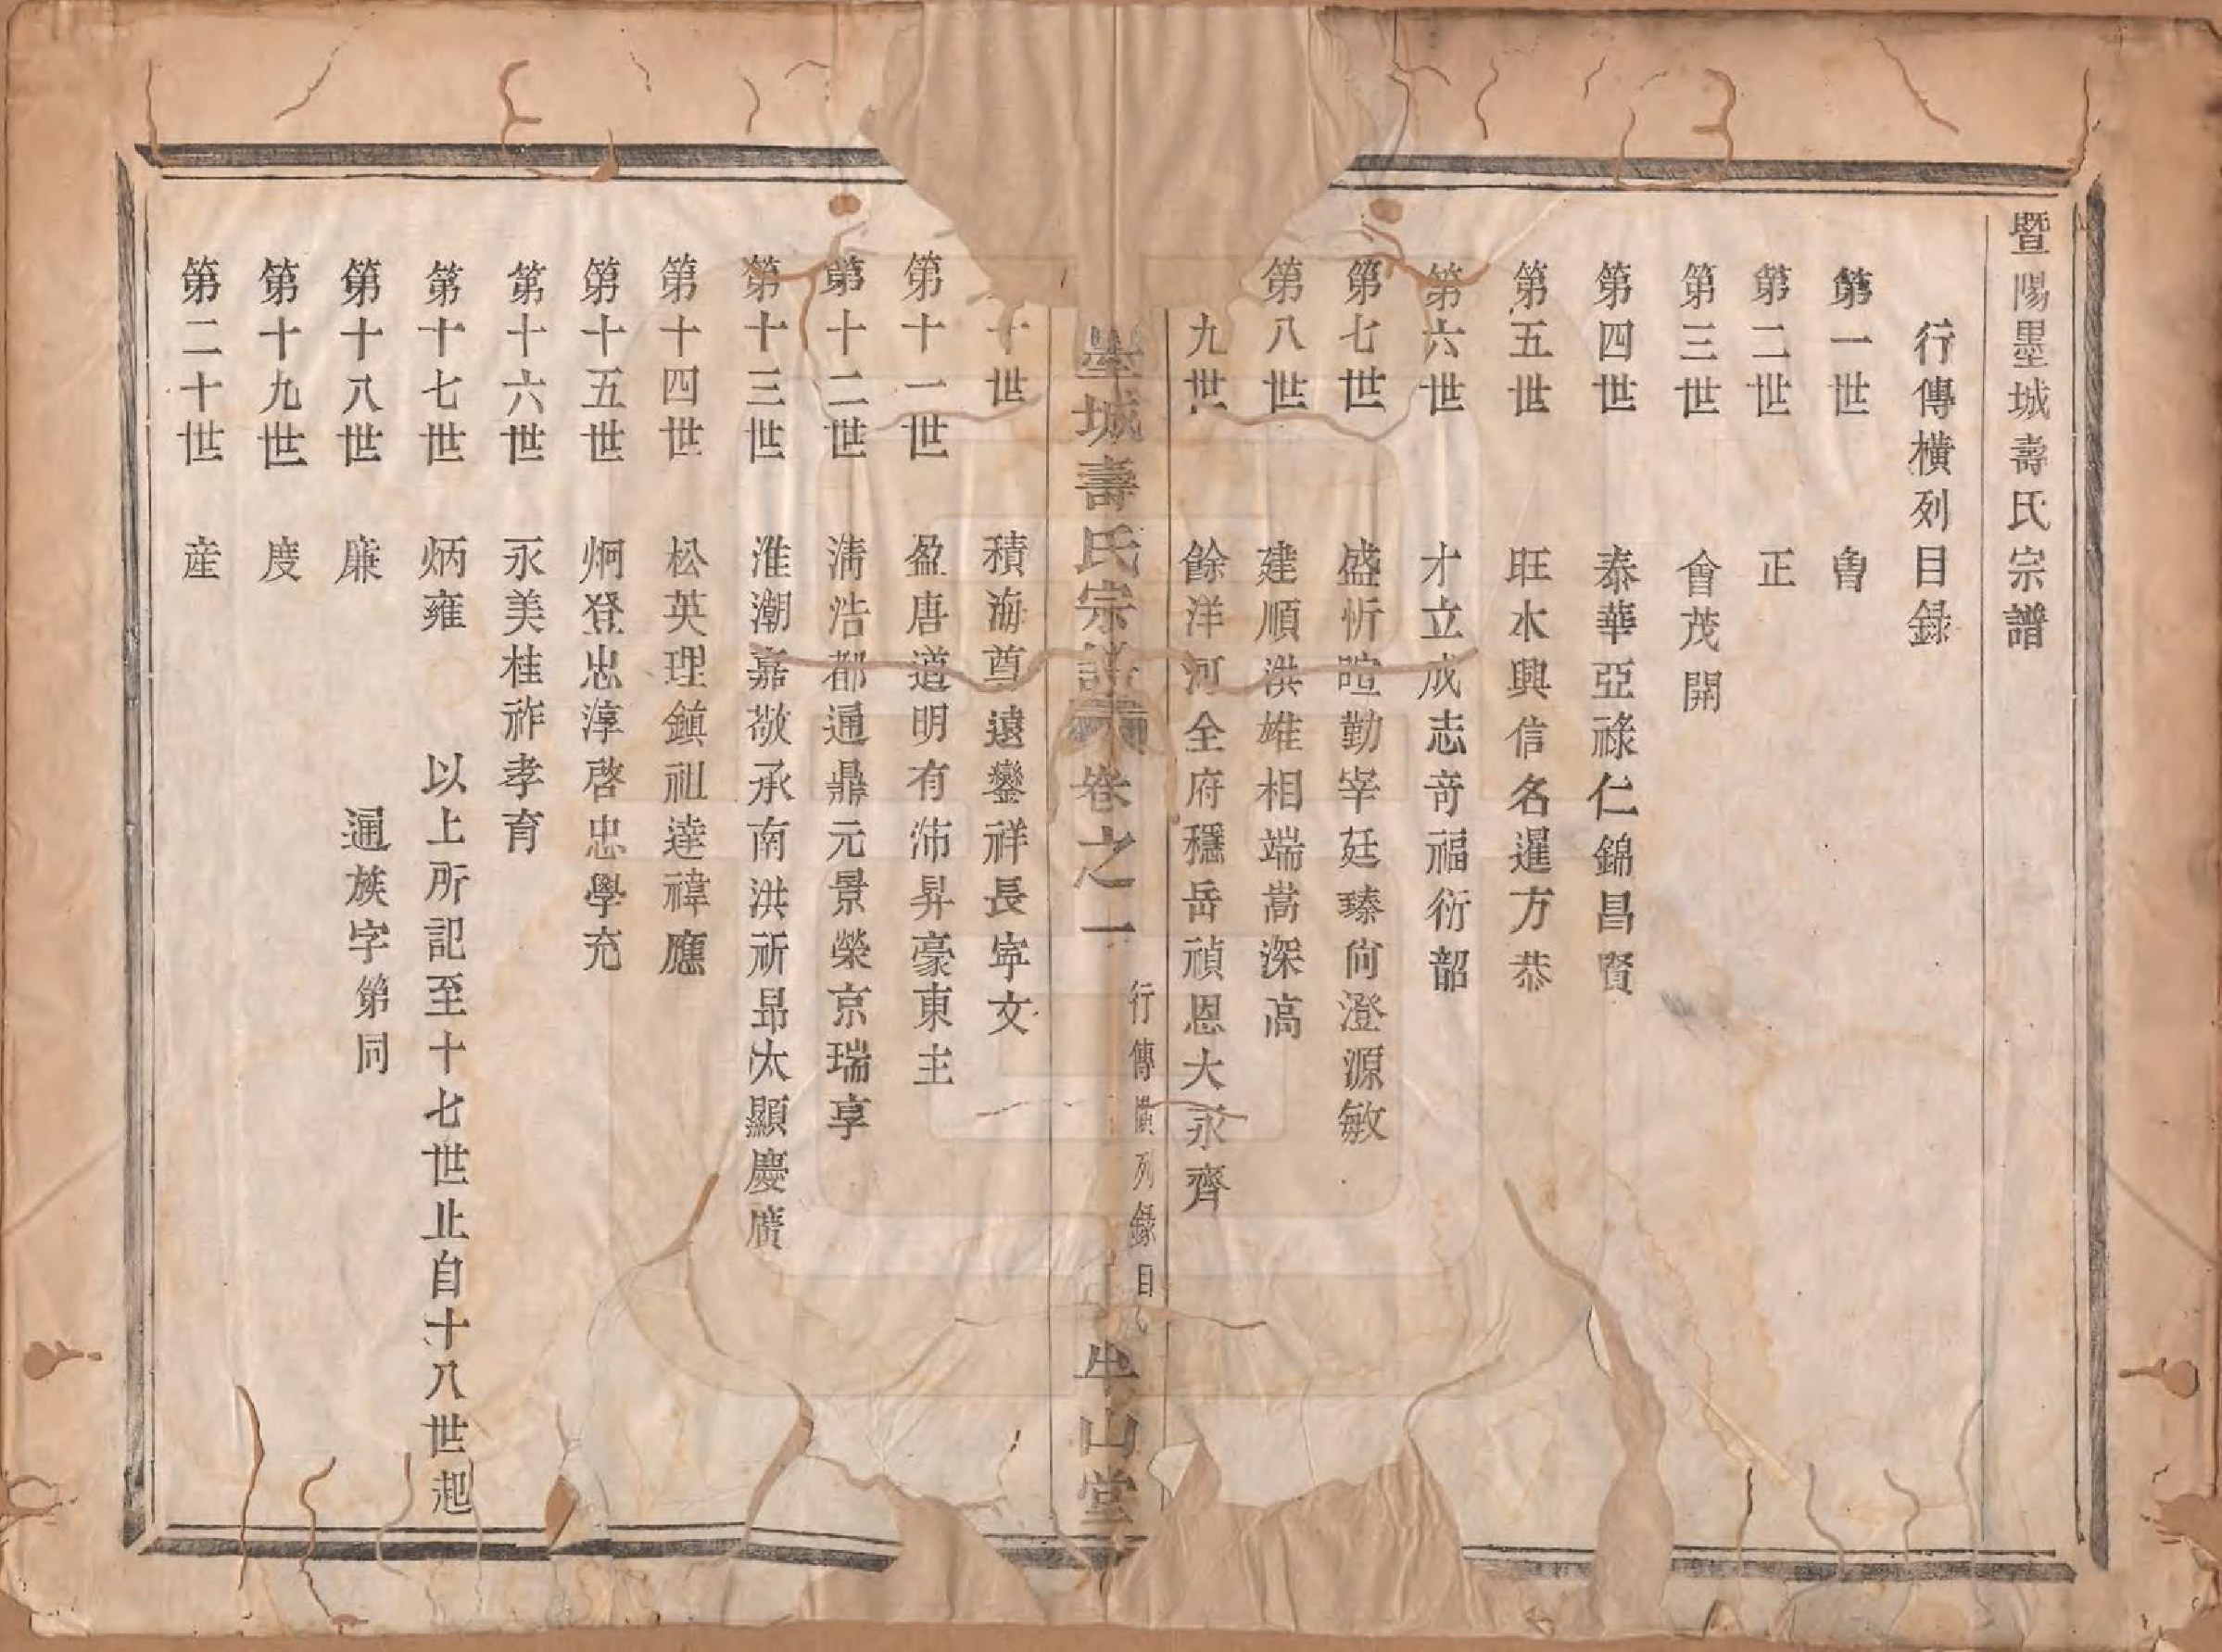 暨陽墨城壽氏宗譜
行傳橫列目録
第一世 魯
第二世 正
第三世 會茂開
第四世 泰華亞祿仁錦昌賢
第五世 旺水興信名暹方恭
第六世 才立成志奇福衍韶
第七世 盛忻暄勤宰廷臻尙澄源敏
第八世 建順洪雄相端嵩深高
九世 餘洋河全府穩岳禎恩大永齊
墨城壽氏宗譜 卷之一 行傳橫列錄目 山堂
十世 積海尊遠鑾祥長寕文
第十一世 盈唐道明有沛昇豪東主
第十二世 淸浩都通鼎元景榮京瑞享
第十三世 淮潮嘉敬承南洪祈昻太顯慶廣
第十四世 松英理鎮祖達禕應
第十五世 炯登忠淳啓忠學充
第十六世 永美桂祚孝育
第十七世 炳雍 以上所記至十七世止自十八世起
第十八世 廉 通族字第同
第十九世 度
第二十世 産